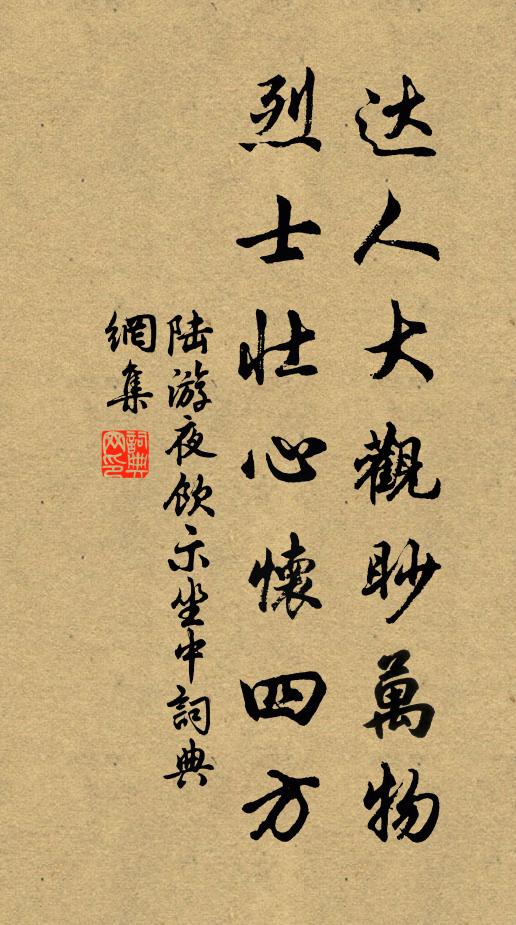 达人大觀眇萬物
烈士壮心懷四方
陆游夜飲示坐中詞典
網集
詞典网印